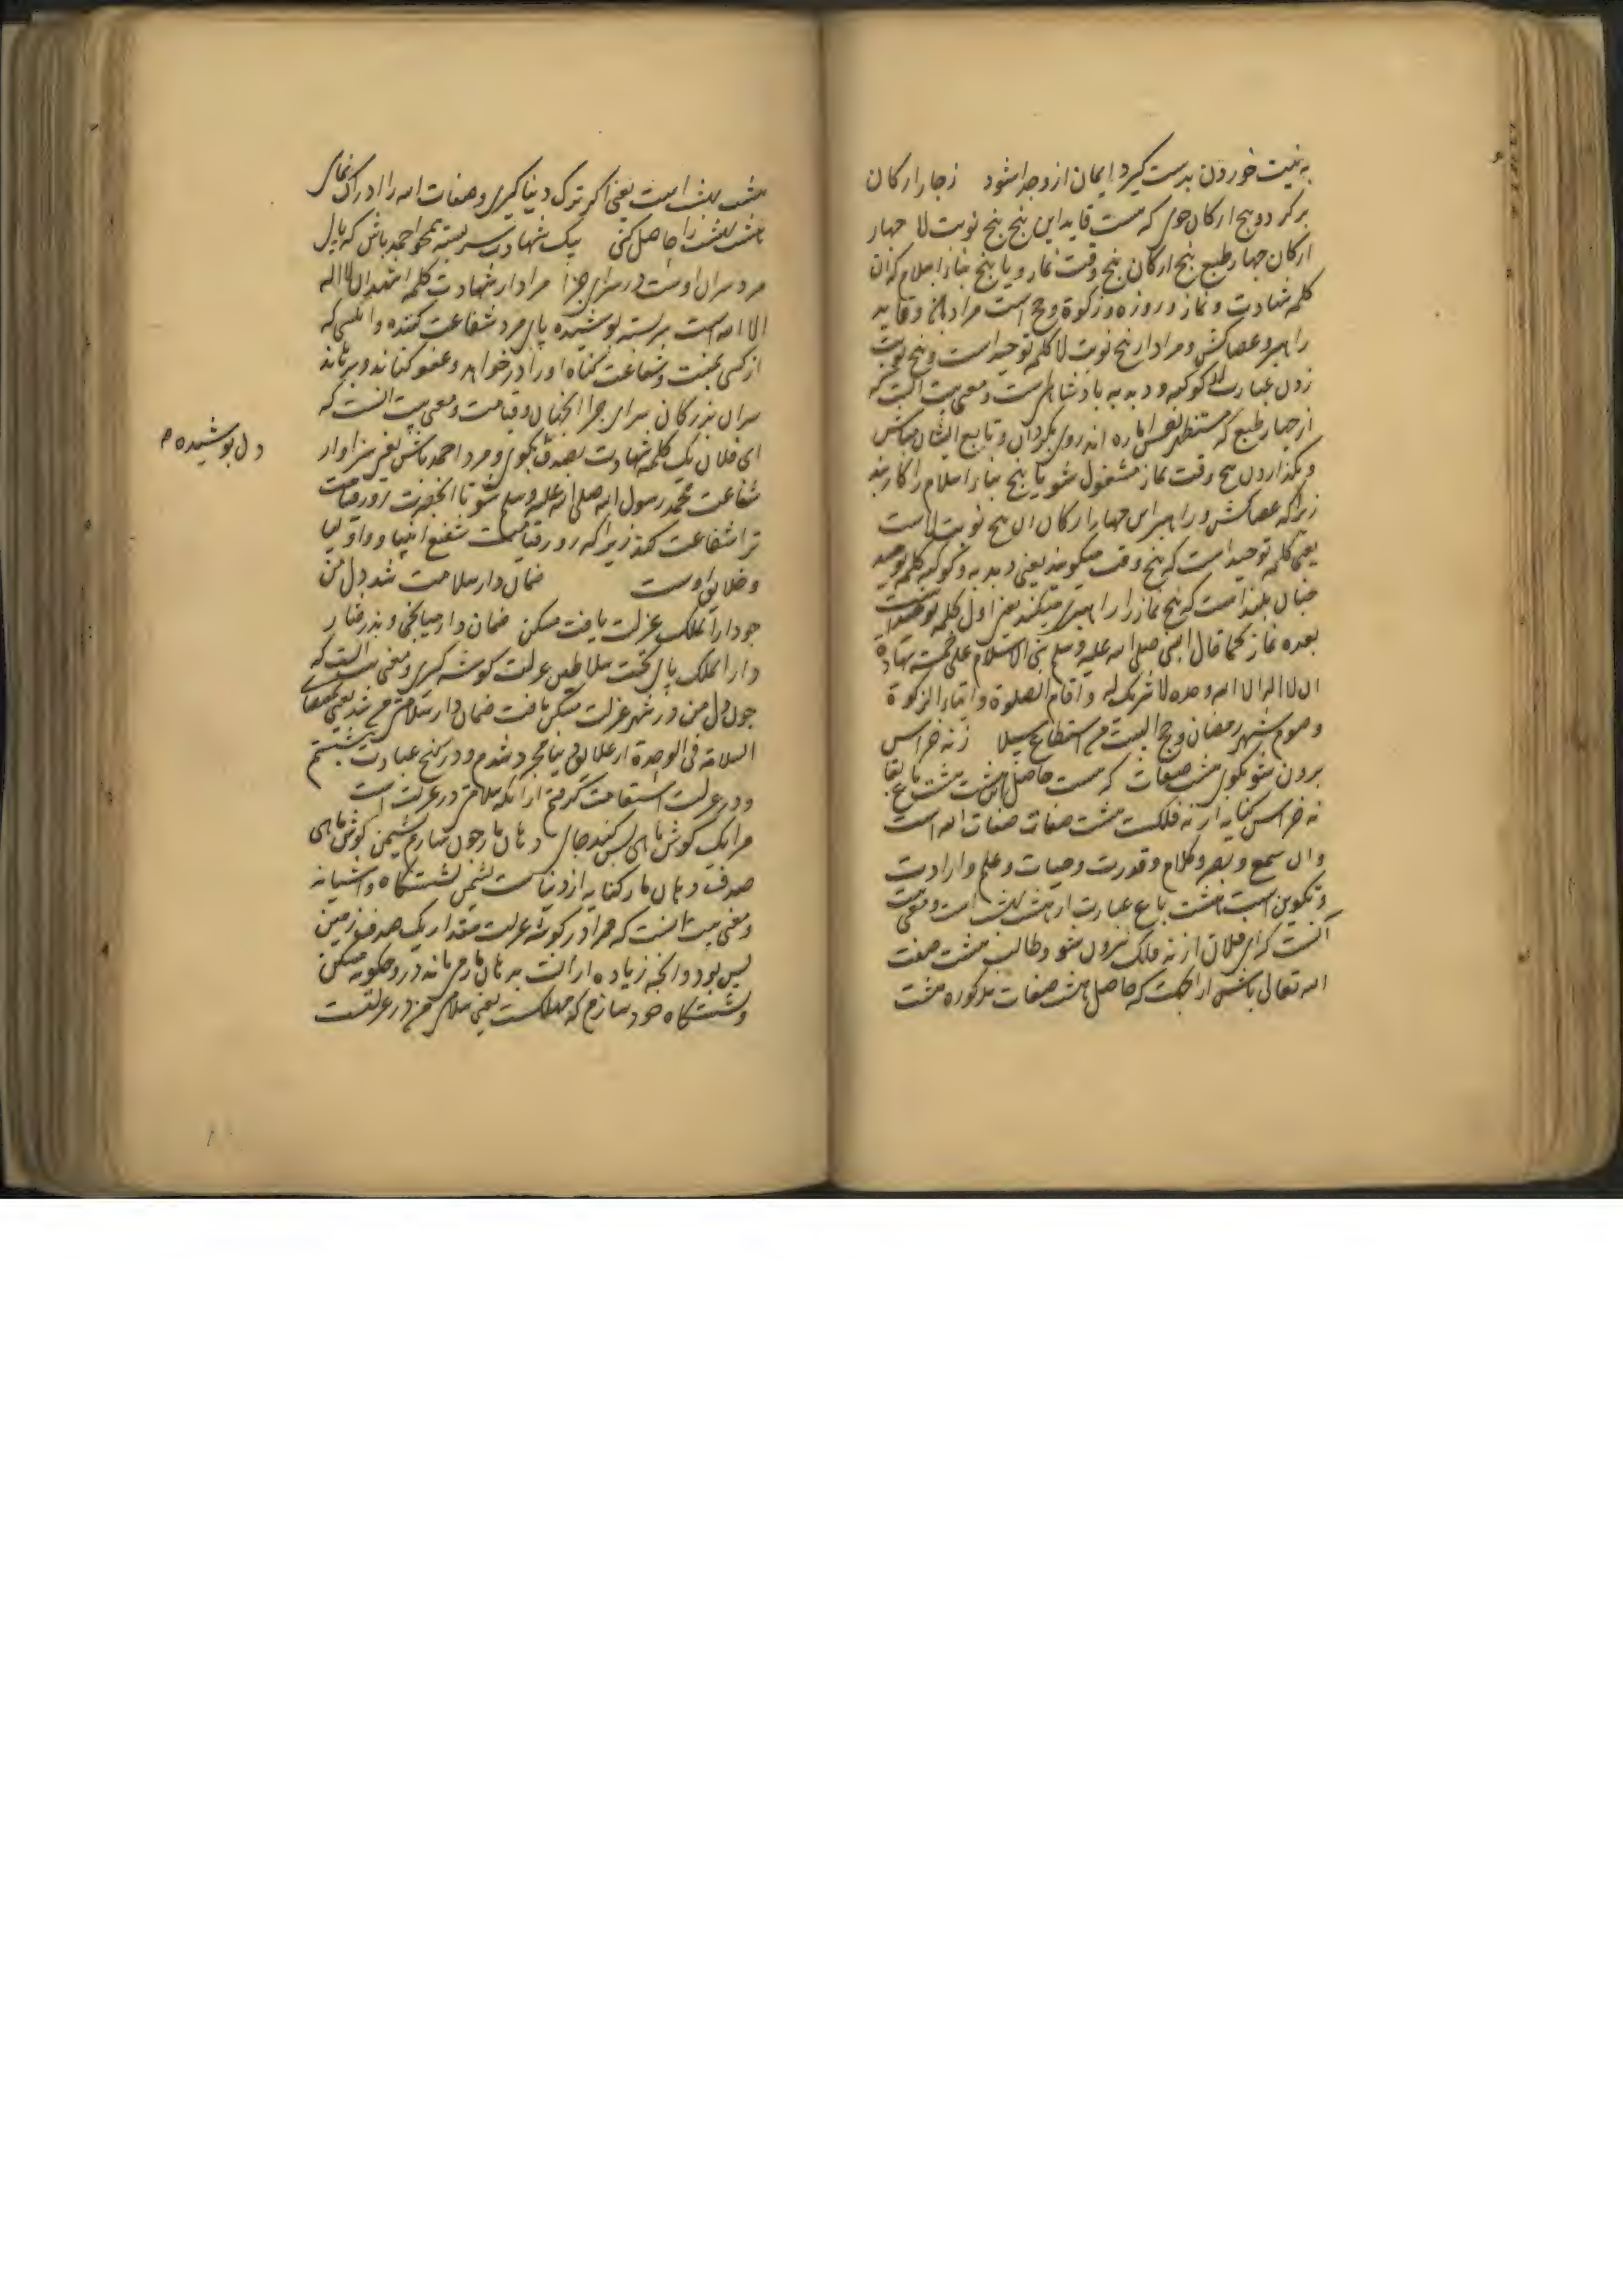 به نیت خوردن بدست گیرد ایمان ازو جدا شود ز چار ارکان
برگرد و پنج ارکان جوی که هست قاید این پنج پنج نوبت لا چهار
ارکان چهار طبع پنج ارکان پنج وقت نماز و یا پنج بناء اسلام که آن
کلمه شهادت و نماز و روزه و زکوة و حج است مراد و قاید
راهبر و عصاکش و مراد از پنج نوبت لا کلمه توحید است و پنج نوبت
زدن عبارت از کوکبه و دبدبه بادشاهیست و معنی بیت آنست که
از چهار طبع که نفس اماره اند روی بگردان و تابع ایشان مباش
و بگذاردن پنج وقت نماز مشغول شو یا پنج بناء اسلام را کاربند
زیراکه عصاکش و راهبر این چهار ارکان ان پنج نوبت لاست
یعنی کلمه توحید است که پنج وقت میگویند یعنی دبدبه و کوکبه کلمه توحید
چنان بلند است که پنج نماز را راهبری میکند یعنی اول کلمه توحید است
بعده نماز کما قال النبی صلی الله علیه وسلم بنی الاسلام علی خمسة شهادة
ان لا اله الا الله وحده لا شریک له و اقام الصلوة و ایتاء الزکوة
و صوم شهر رمضان و حج البیت من استطاع سبیلا ز نه خراس
برون شو بکوی هشت صفات که هست حاصل هشت باغ بقا
نه خراس کنایه از نه فلکست هشت صفات صفات الله است
و ان سمع و بصر و کلام و قدرت و حیات و علم و ارادت
و تکوین است هشت باغ عبارت از هشت بهشت است و معنی بیت
آنست که ای فلان از نه فلک بیرون شو و طالب هشت صفت
الله تعالی باش از آنجهت که حاصل هشت صفات مذکوره هشت
هشت بهشت است یعنی اگر ترک دنیا گیری و صفات الله را ادراک نمای
هشت بهشت را حاصل کنی بیک شهادت سربسته مرد احمد باش که پای
مرد سران اوست در سرای جزا مراد از شهادت کلمه اشهد ان لا اله
الا الله است سربسته پوشیده پای مرد شفاعت کننده و انکسی که
از کسی بمنت و شفاعت گناه او را درخواهد و عفو کناند و برهاند
سران بزرگان سرای جزا آنجهان و قیامت و معنی بیت آنست که
ای فلان یک کلمه شهادت بصدق بگوی و مرد احمد باش یعنی سزاوار
دل پوشیده ۲
شفاعت محمد رسول الله صلی الله علیه وسلم شو تا آنحضرت روز قیامت
ترا شفاعت کند زیراکه روز قیامت شفیع انبیا و اولیا
و خلایق اوست ضمان دار سلامت شد دل من
چو دار الملک عزلت یافت مسکن ضمان دار میانجی و پذرفتار
دار الملک پای تخت سلاطین عزلت گوشه گیری و معنی بیت آنست که
چون دل من در شهر عزلت مسکن یافت ضمان دار سلامتی من شد یعنی
السلامة فی الوحدة از علایق دنیا مجرد شدم و در کنج عبادت بنشستم
و در عزلت استقامت گرفتم از آنکه سلامتی در عزلت است
مرا یک گوش ماهی بس کند جای دهان مار چون سازم نشیمن گوش ماهی
صدف دهان مار کنایه از دنیاست نشیمن نشستگاه و آشیانه
و معنی بیت آنست که مرا در گوشه عزلت مقدار یک صدف زمین
بس بود و آنچه زیاده از آنست بدهان مار می ماند درو چگونه مسکن
و نشستگاه خود سازم که مهلکست یعنی سلامتی من در عزلتست